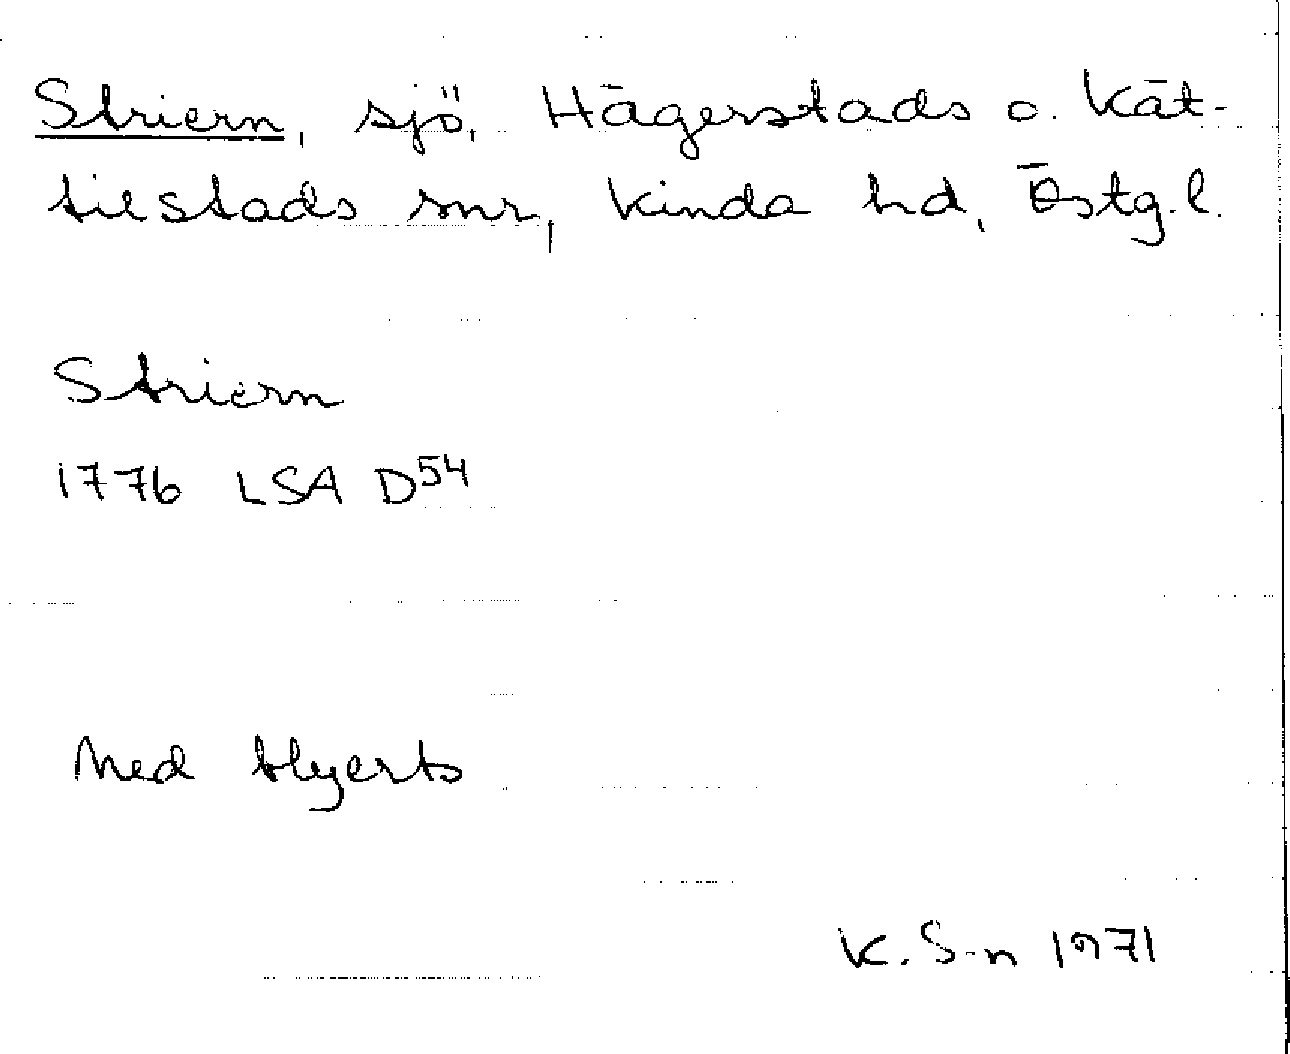 Striern, sjö, Hägerstads o. Kät-
tilstads snr, Kinda hd, Östg.l.
Striern
1776 LSA D54
K. S-n 1971